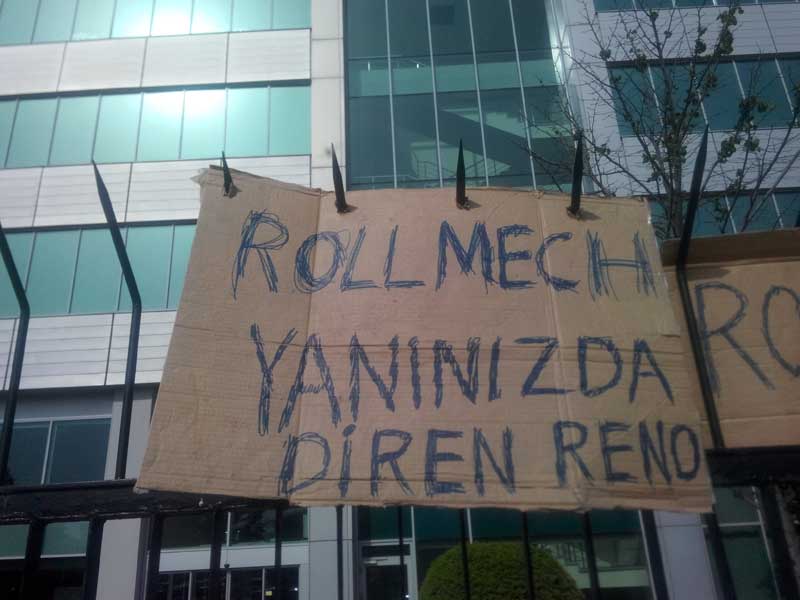 ROLLMECH
YANINIZDA
DİREN RENO
RO